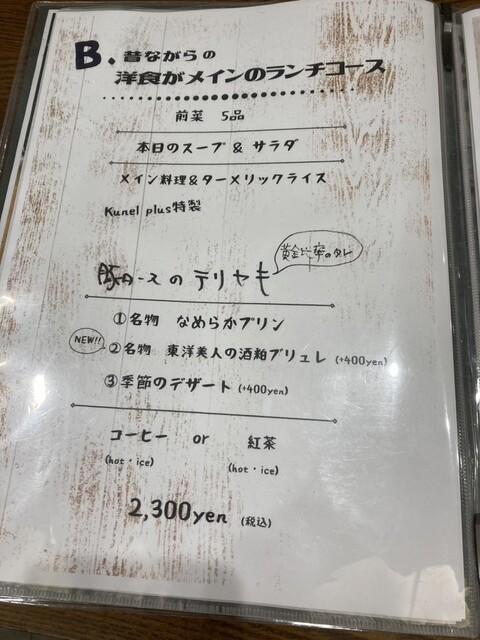 B. 昔ながらの
洋食がメインのランチコース
前菜 5品
本日のスープ & サラダ
メイン料理&ターメリックライス
Kunel plus特製
黄金比率のタレ
豚ロースのテリヤキ
①名物 なめらかプリン
NEW!!
②名物 東洋美人の酒粕ブリュレ (+400yen)
③季節のデザート (+400yen)
コーヒー or 紅茶
(hot・ice) (hot・ice)
2,300yen (税込)